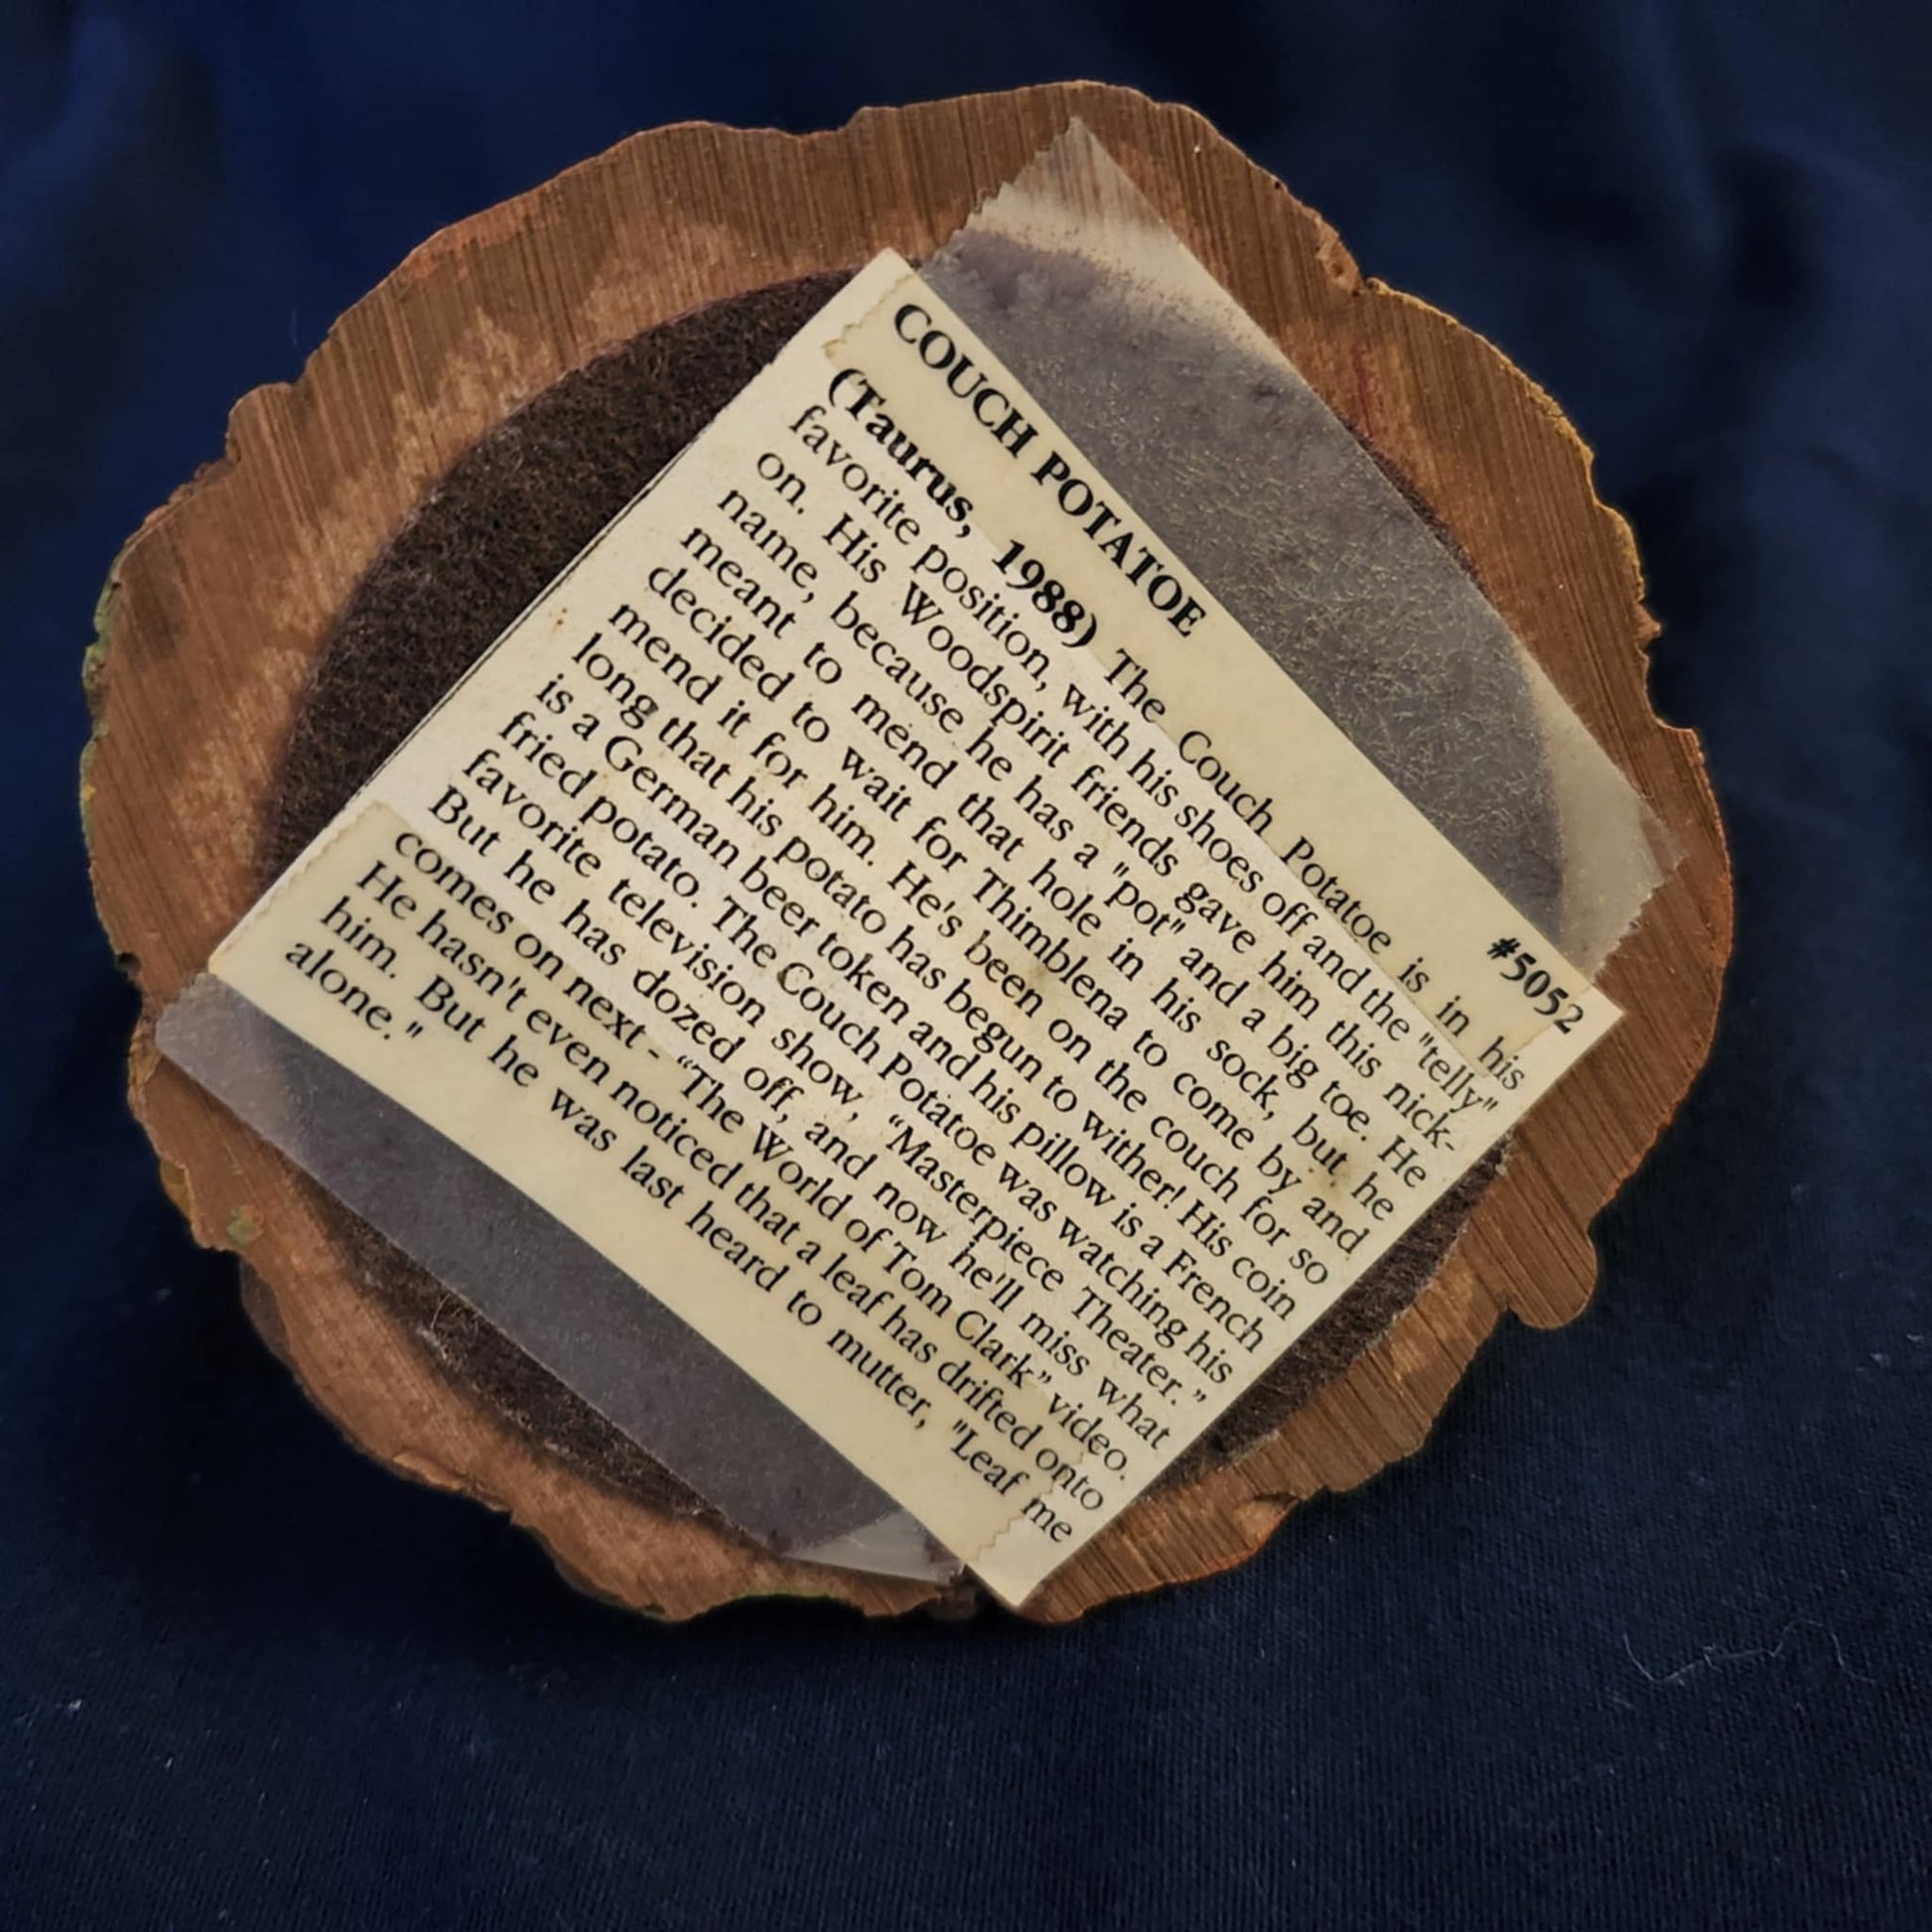 COUCH POTATOE #5052
(Taurus, 1988) The Couch Potatoe is in his
favorite position, with his shoes off and the "telly"
on. His Woodspirit friends gave him this nick-
name, because he has a "pot" and a big toe. He
meant to mend that hole in his sock, but he
decided to wait for Thimblena to come by and
mend it for him. He's been on the couch for so
long that his potato has begun to wither! His coin
is a German beer token and his pillow is a French
fried potato. The Couch Potatoe was watching his
favorite television show, “Masterpiece Theater.”
But he has dozed off, and now he'll miss what
comes on next - “The World of Tom Clark” video.
He hasn't even noticed that a leaf has drifted onto
him. But he was last heard to mutter, "Leaf me
alone."